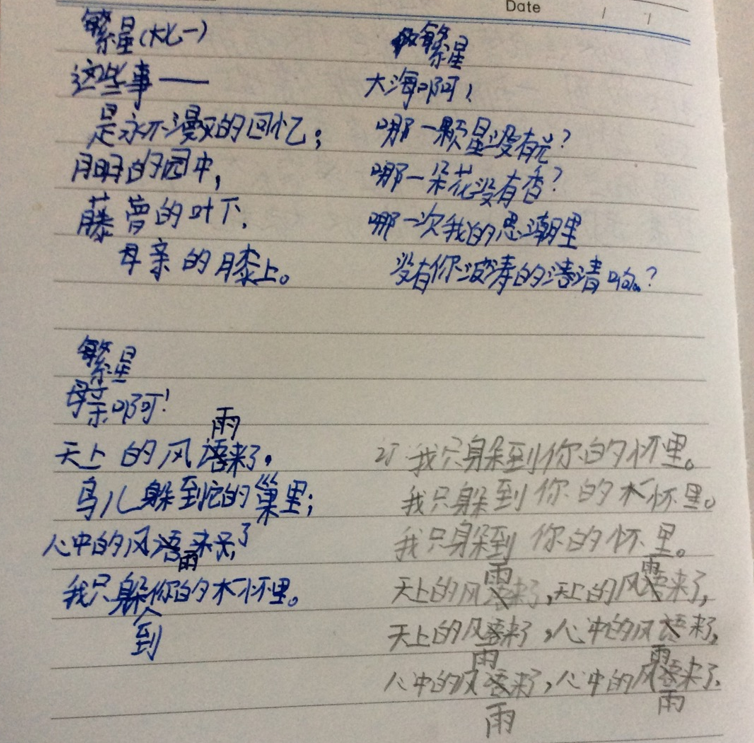 Date
繁星(大七一)
这些事——
是永不漫灭的回忆;
月明的园中,
藤萝的叶下,
母亲的膝上。
繁星
大海啊!
哪一颗星没有光?
哪一朵花没有香?
哪一次我的思潮里
没有你波涛的清响?
繁星
母亲啊!
天上的风雨来了,
鸟儿躲到它的巢里;
心中的风雨来了
我只躲到你的怀里。
我只躲到你的怀里。
我只躲到你的怀里。
我只躲到你的怀里。
天上的风雨来了,天上的风雨来了,
天上的风雨来了,心中的风雨来了,
心中的风雨来了,心中的风雨来了.